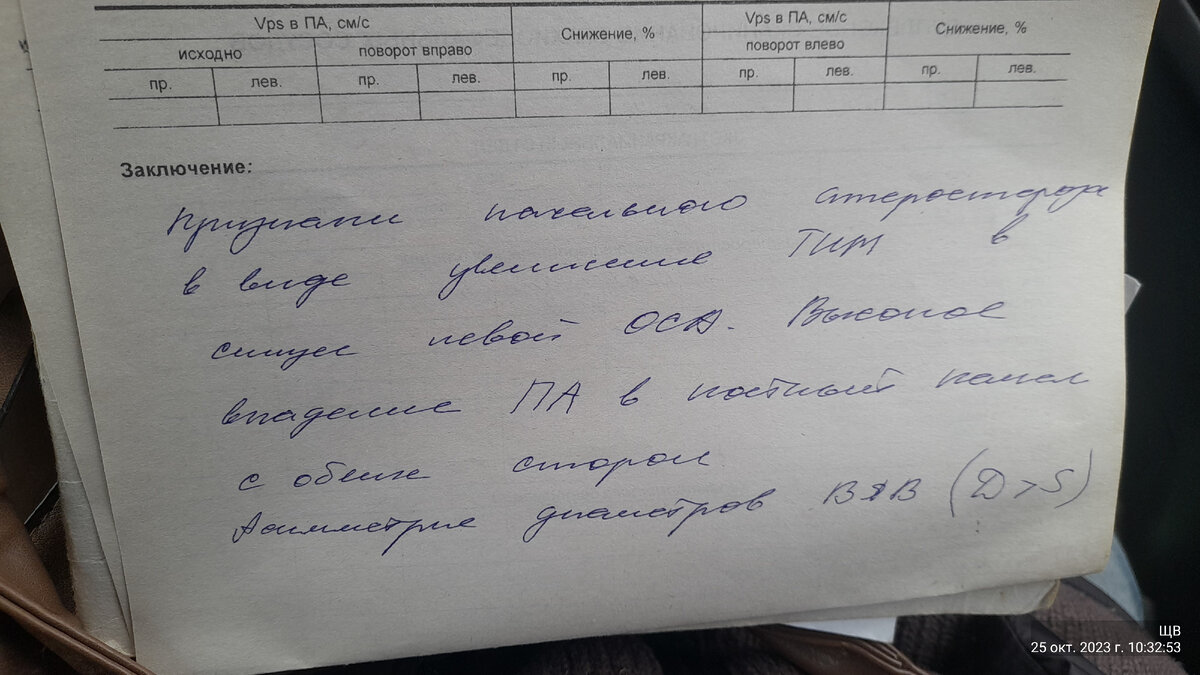 Vps в ПА, см/с Снижение, % Vps в ПА, см/с Снижение, %
исходно поворот вправо поворот влево
пр. лев. пр. лев. пр. лев. пр. лев. пр. лев.
Заключение:
Признаки начального атеросклероза
в виде увеличение ТИМ в
синусе левой ОСА. Высокое
впадение ПА в костный канал
с обеих сторон
Асимметрие диаметров ВЯВ (D>S)
ЩВ
25 окт. 2023 г. 10:32:53